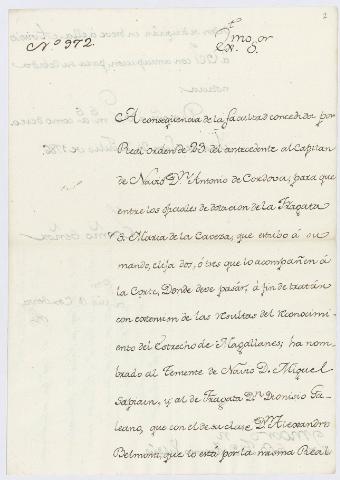 2
Nº 372.
Exmo. Sor.
A consequencia de la facultad concedida por
Real orden de 23. del antecedente al Capitan
de Navio Dn. Antonio de Cordova, para que
entre los oficiales de dotacion de la Fragata
Sta. Maria de la Caveza, que estubo á su
mando, elija dos, ó tres que lo acompañen á
la Corte, Donde deve pasár, á fin de tratár
con extension de las resultas del reconocimi-
ento del Estrecho de Magallanes; ha nom-
brado al Temente de Navio D. Miguel
Sapiain, y al de Fragata Dn. Dionisio Ga-
leano, que con el de su clase Dn. Alexandro
Belmonti, que lo está por la misma Real